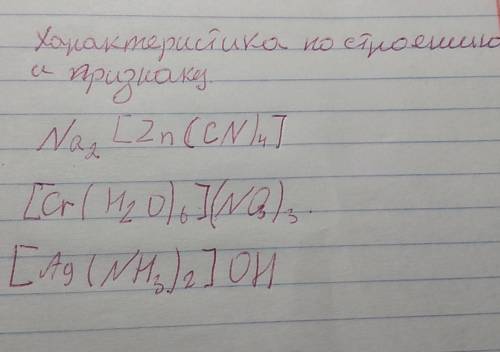 Характеристика по строению
и признаку.
Na₂[Zn(CN)₄]
[Cr(H₂O)₆](NO₃)₃.
[Ag(NH₃)₂]OH